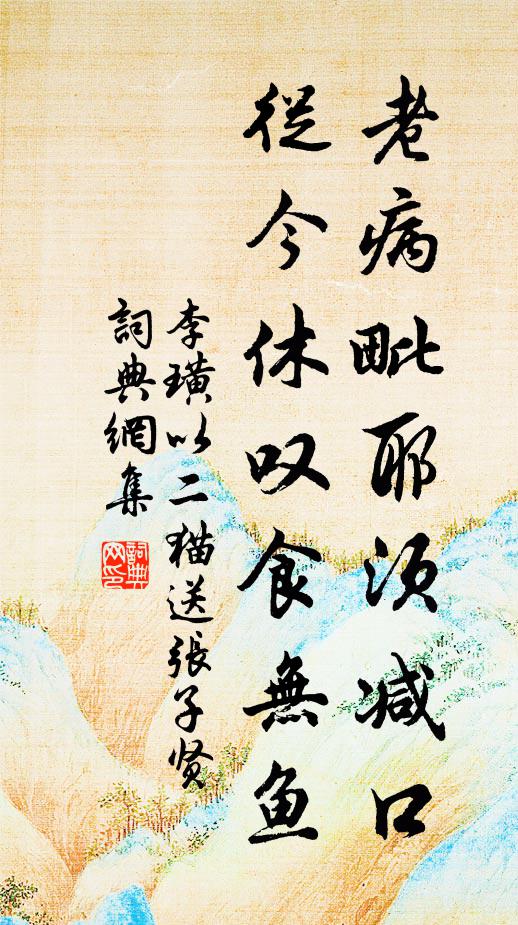 老病毗耶须减口
從今休叹食無鱼
李璜以二猫送張子贤
詞典網集
詞典网印